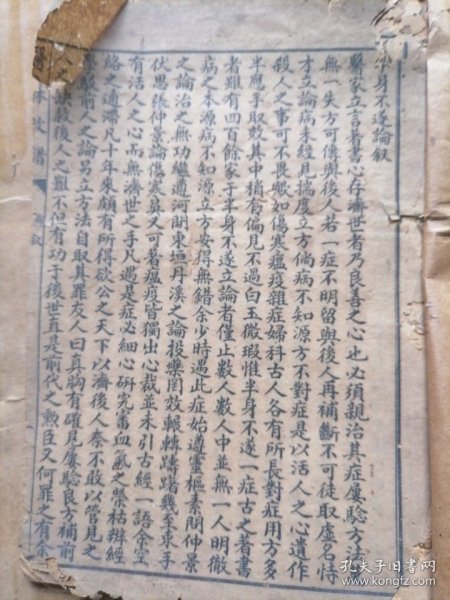 半身不遂論叙
醫家立言著書心存濟世者乃良善之心也必須親治其症屢驗方法萬
無一失方可傳與後人若一症不明留與後人再補斷不可徒取虛名恃
才立論病未經見揣度立方倘病不知源方不對症是以活人之心遺作
殺人之事可不畏歟如傷寒瘟疫雜症婦科古人各有所長對症用方多
半應手取效其中稍有偏見不過白玉微瑕惟半身不遂一症古之著書
者雖有四百餘家于半身不遂立論者僅止數人數人中並無一人明徹
病之本源病不知源立方安得無錯余少時遇此症始遵靈樞素問仲景
之論治之無功繼遵河間東垣丹溪之論投藥罔效輾轉躊躇幾至束手
伏思張仲景論傷寒吳又可著瘟疫皆獨出心裁並未引古經一語余空
有活人之心而無濟世之手凡遇是症必細心研究審血氣之榮枯辨經
絡之通滯凡十年來頗有所得欲公之天下以濟後人奈不敢以管見之
前人之論另立方法自取其罪友人曰真胸有確見屢驗良方補前
人之 救後人之難不但有功于後世真是前代之勲臣又何罪之有余
醫林改錯
孔夫子旧书网